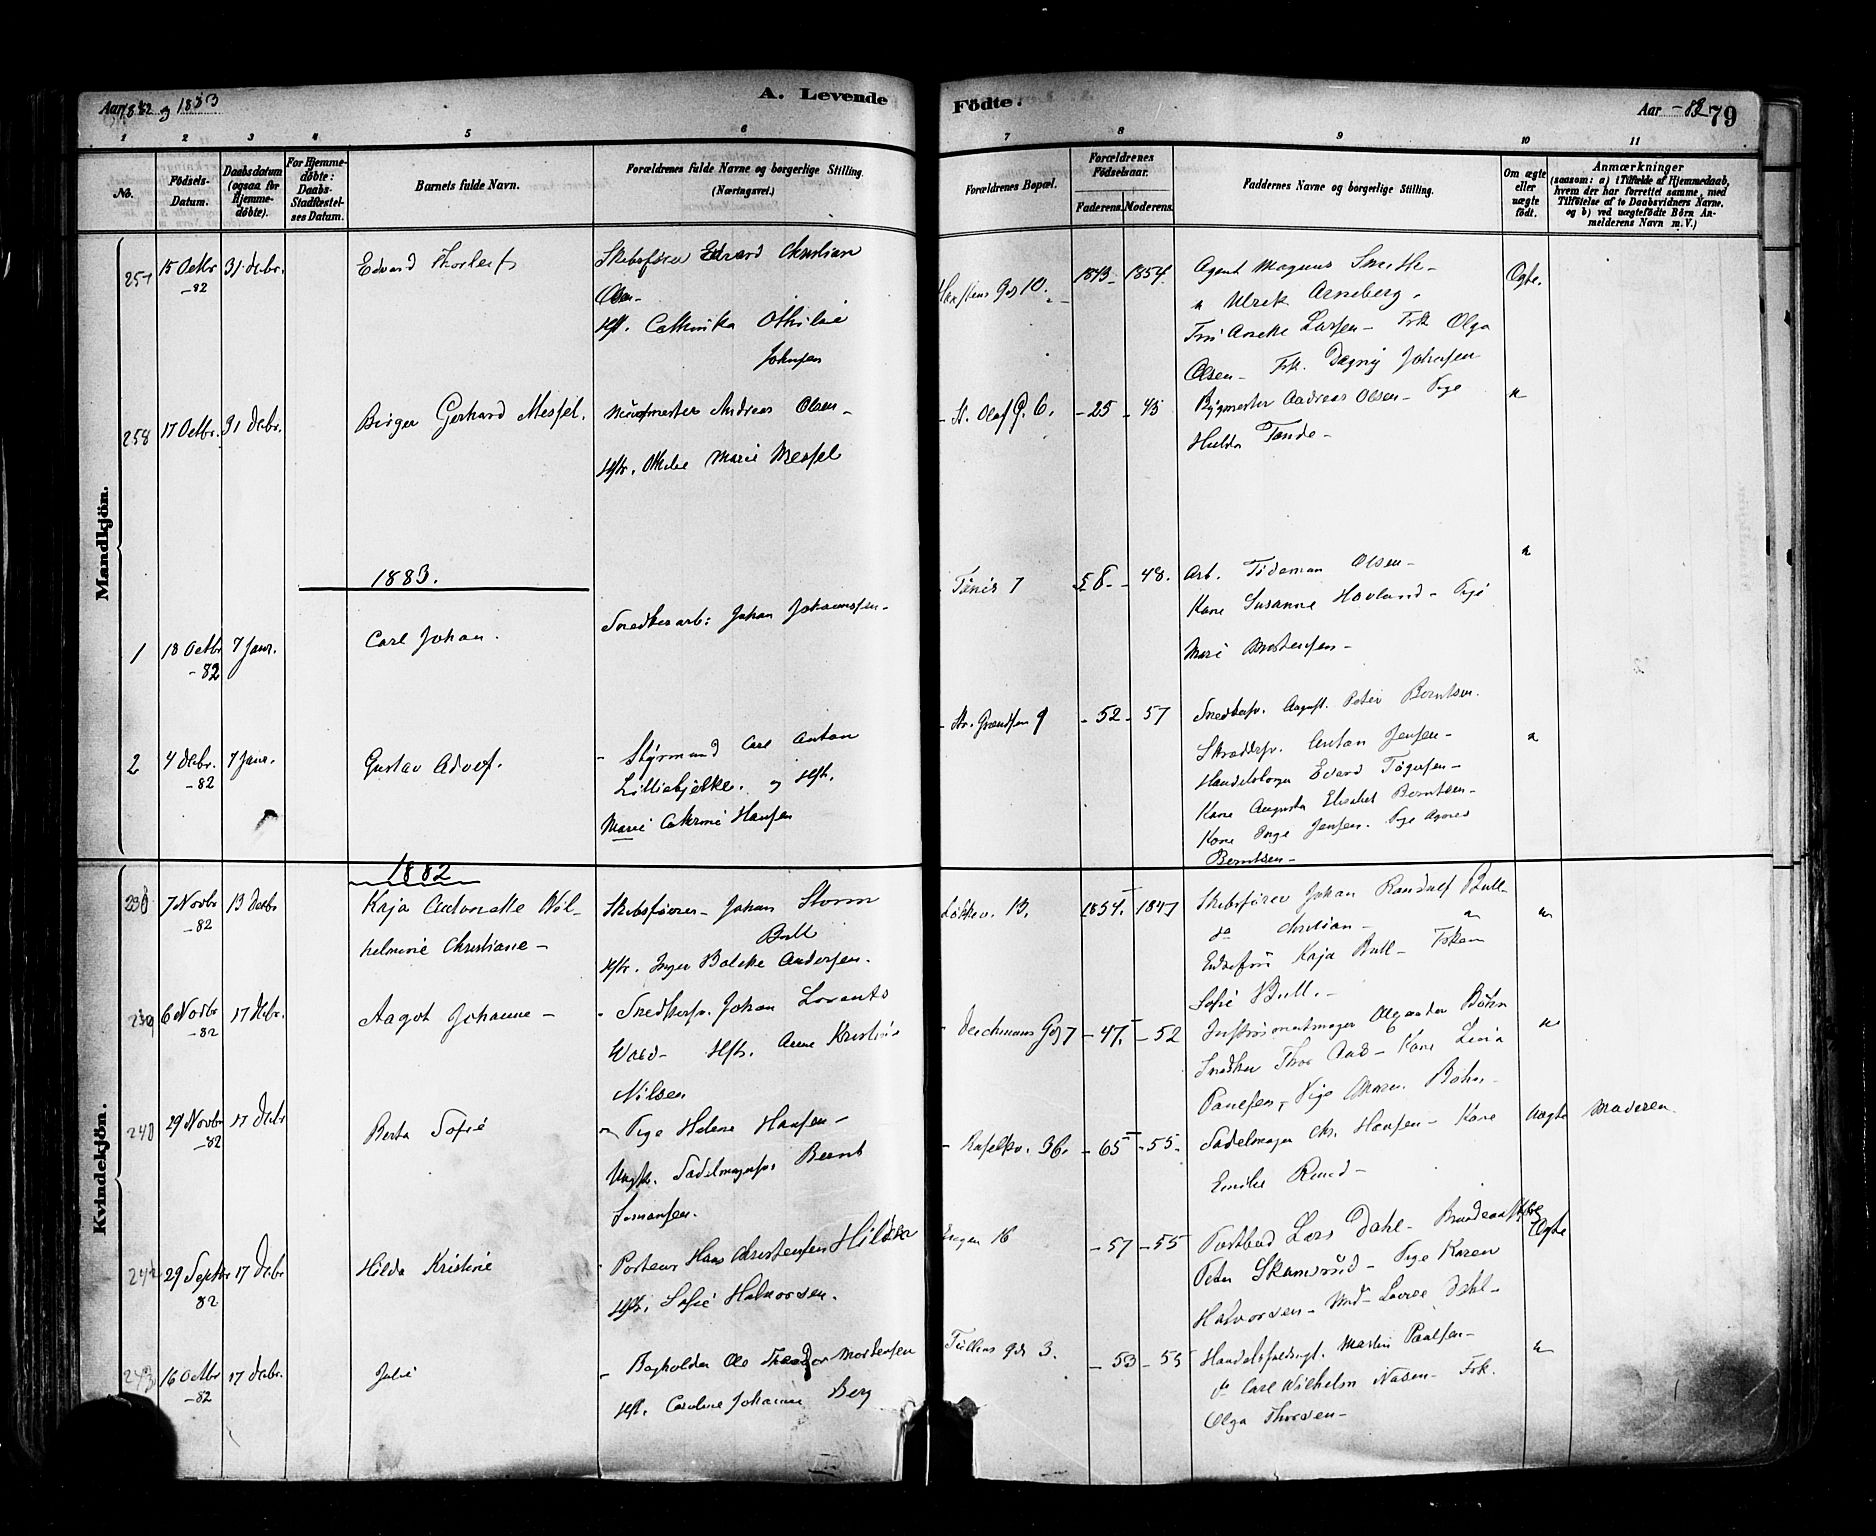 Aar 1882 og 1883
A. Levende
Födte.
Aar -83
79
1 2 3 4 5 6 7 8 9 10 11
No.
Födsels-
Datum.
Daabsdatum
(ogsaa for
Hjemme-
döbte).
For Hjemme-
döbte:
Daabs-
Stadfæstel-
ses Datum.
Barnets fulde Navn.
Forældrenes fulde Navne og borgerlige Stilling.
(Næringsvei.)
Forældrenes Bopæl.
Forældrenes
Födselsaar.
Faderens.
Moderens.
Faddernes Navne og borgerlige Stilling.
Om ægte
eller
uægte
födt.
Anmærkninger
(saasom: a) i Tilfælde af Hjemmedaab,
hvem der har forrettet samme, med
Tilföielse af to Daabsvidners Navne,
og b) ved uægtefödte Börn An-
melderens Navn m. V.)
Mandkjön.
257
15 Octbr.
-82
31 debr.
Edvard Thorleif
Skibsfører Edvard Christian
Olsen-
Hst. Cathinka Othilie
Johnsen
10.
1843
1854.
Agent Magnus Smith-
" Ulrik Arneberg.
Larsen- Frk Olga
Olsen- Frk. Dagny Johnsen
Ogte.
258
17 Octbr.
31 Debr.
Birger Gerhard Messel.
Murmester Andreas Olsen-
Hstr. Othilie Marie Messel
- St. Olaf G. 6.
-25
-45
Bygmester Andreas Olsen- Pige
Hulda Tande-
"
1883.
1
18 Octbr
-82
7 Janr.
Carl Johan.
Snedkerarb: Johan Johannesen-
7
58-
-48.
Arb. Tideman Olsen-
Kone Susanne Hovland- Pige
Marie Mortensen-
"
2
4 debr.
-82
7 Janr.
Gustav Adolf.
- Styrmand Carl Anton
Lilliebjelke. og Hst.
Marie Cathrine Hansen
- Str. Grændsen 9
-52-
57
Snedkersv. August Peter Berntsen.
Skræddersv. Anton Jensen-
Edvard
Kone Augusta Elisabet Berntsen-
Kone Inga Jensen. Pige Agnes
Berntsen-
"
Kvindekjön.
1882
7 Novbr
-82
13 Debr
Kaja Antonette Wil-
helmine Christiane-
Skibsfører- Johan Storm
Bull
Hstr. Inger Bolette Andersen.
13.
1854.
1847
Skibsfører Johan Randulf Bull-
do Christian- "
Enkefru Kaja Bull- Frøken
Sofie Bull.-
"
239
6 Novbr
-82
17 Debr.
Aagot Johanne-
- Snedkersv. Johan Lorents
Hstr. Anne Kristine
Nilsen
- Deichmans Gd 7
-47.
-52
Instrumentmager Bøhn
Snedker Thor Aas- Kone
Paulsen, Pige Maren Bøhn-
"
240
29 Novbr
-82
17 Debr
Berta Sofie
- Pige Helene Hansen-
Ungk. Sadelmagersv. Bernt
Simensen.
36.
-65
-55-
Sadelmager Chr. Hansen- Kone
Emilie Ruud-
Uægte
Moderen.
29 Septbr
82
17 Debr
Hilda Kristine
- Porteur Hans Christensen
Hst. Sofie Halvorsen.
Engen 16
-57
-55
Postbud Lars Dahl-
Peter Skamsrud- Pige Karen
Halvorsen- Dahl-
Ogte
243
16 Octbr
-82
17 Debr.
Julie
- Bogholder Ole Theodor Mortensen
Hst. Caroline Johanne Berg
3.
-53
-55
Handelsfuldmgt. Martin Paulsen-
do Carl Wilhelm Frk.
Olga Thorsen-
"